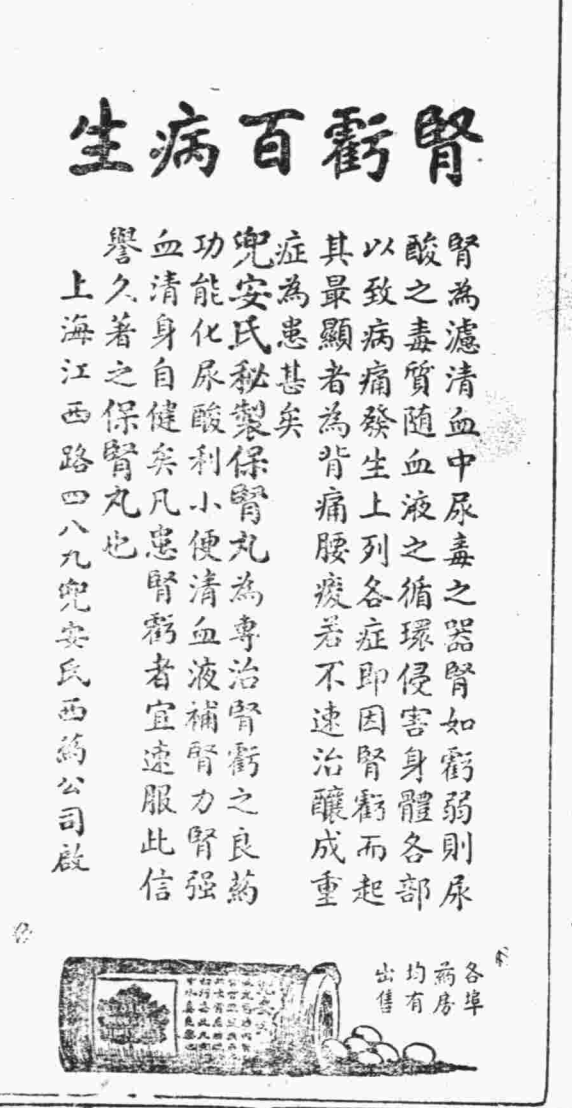 腎虧百病生
腎為濾清血中尿毒之器腎如虧弱則尿
酸之毒質随血液之循環侵害身體各部
以致病痛發生上列各症即因腎虧而起
其最顯者為背痛腰痠若不速治釀成重
症為患甚矣
兜安氏秘製保腎丸為專治腎虧之良葯
功能化尿酸利小便清血液補腎力腎强
血清身自健矣凡患腎虧者宜速服此信
譽久著之保腎丸也
上海江西路四八九兜安氏西葯公司啟
各埠
葯房
均有
出售